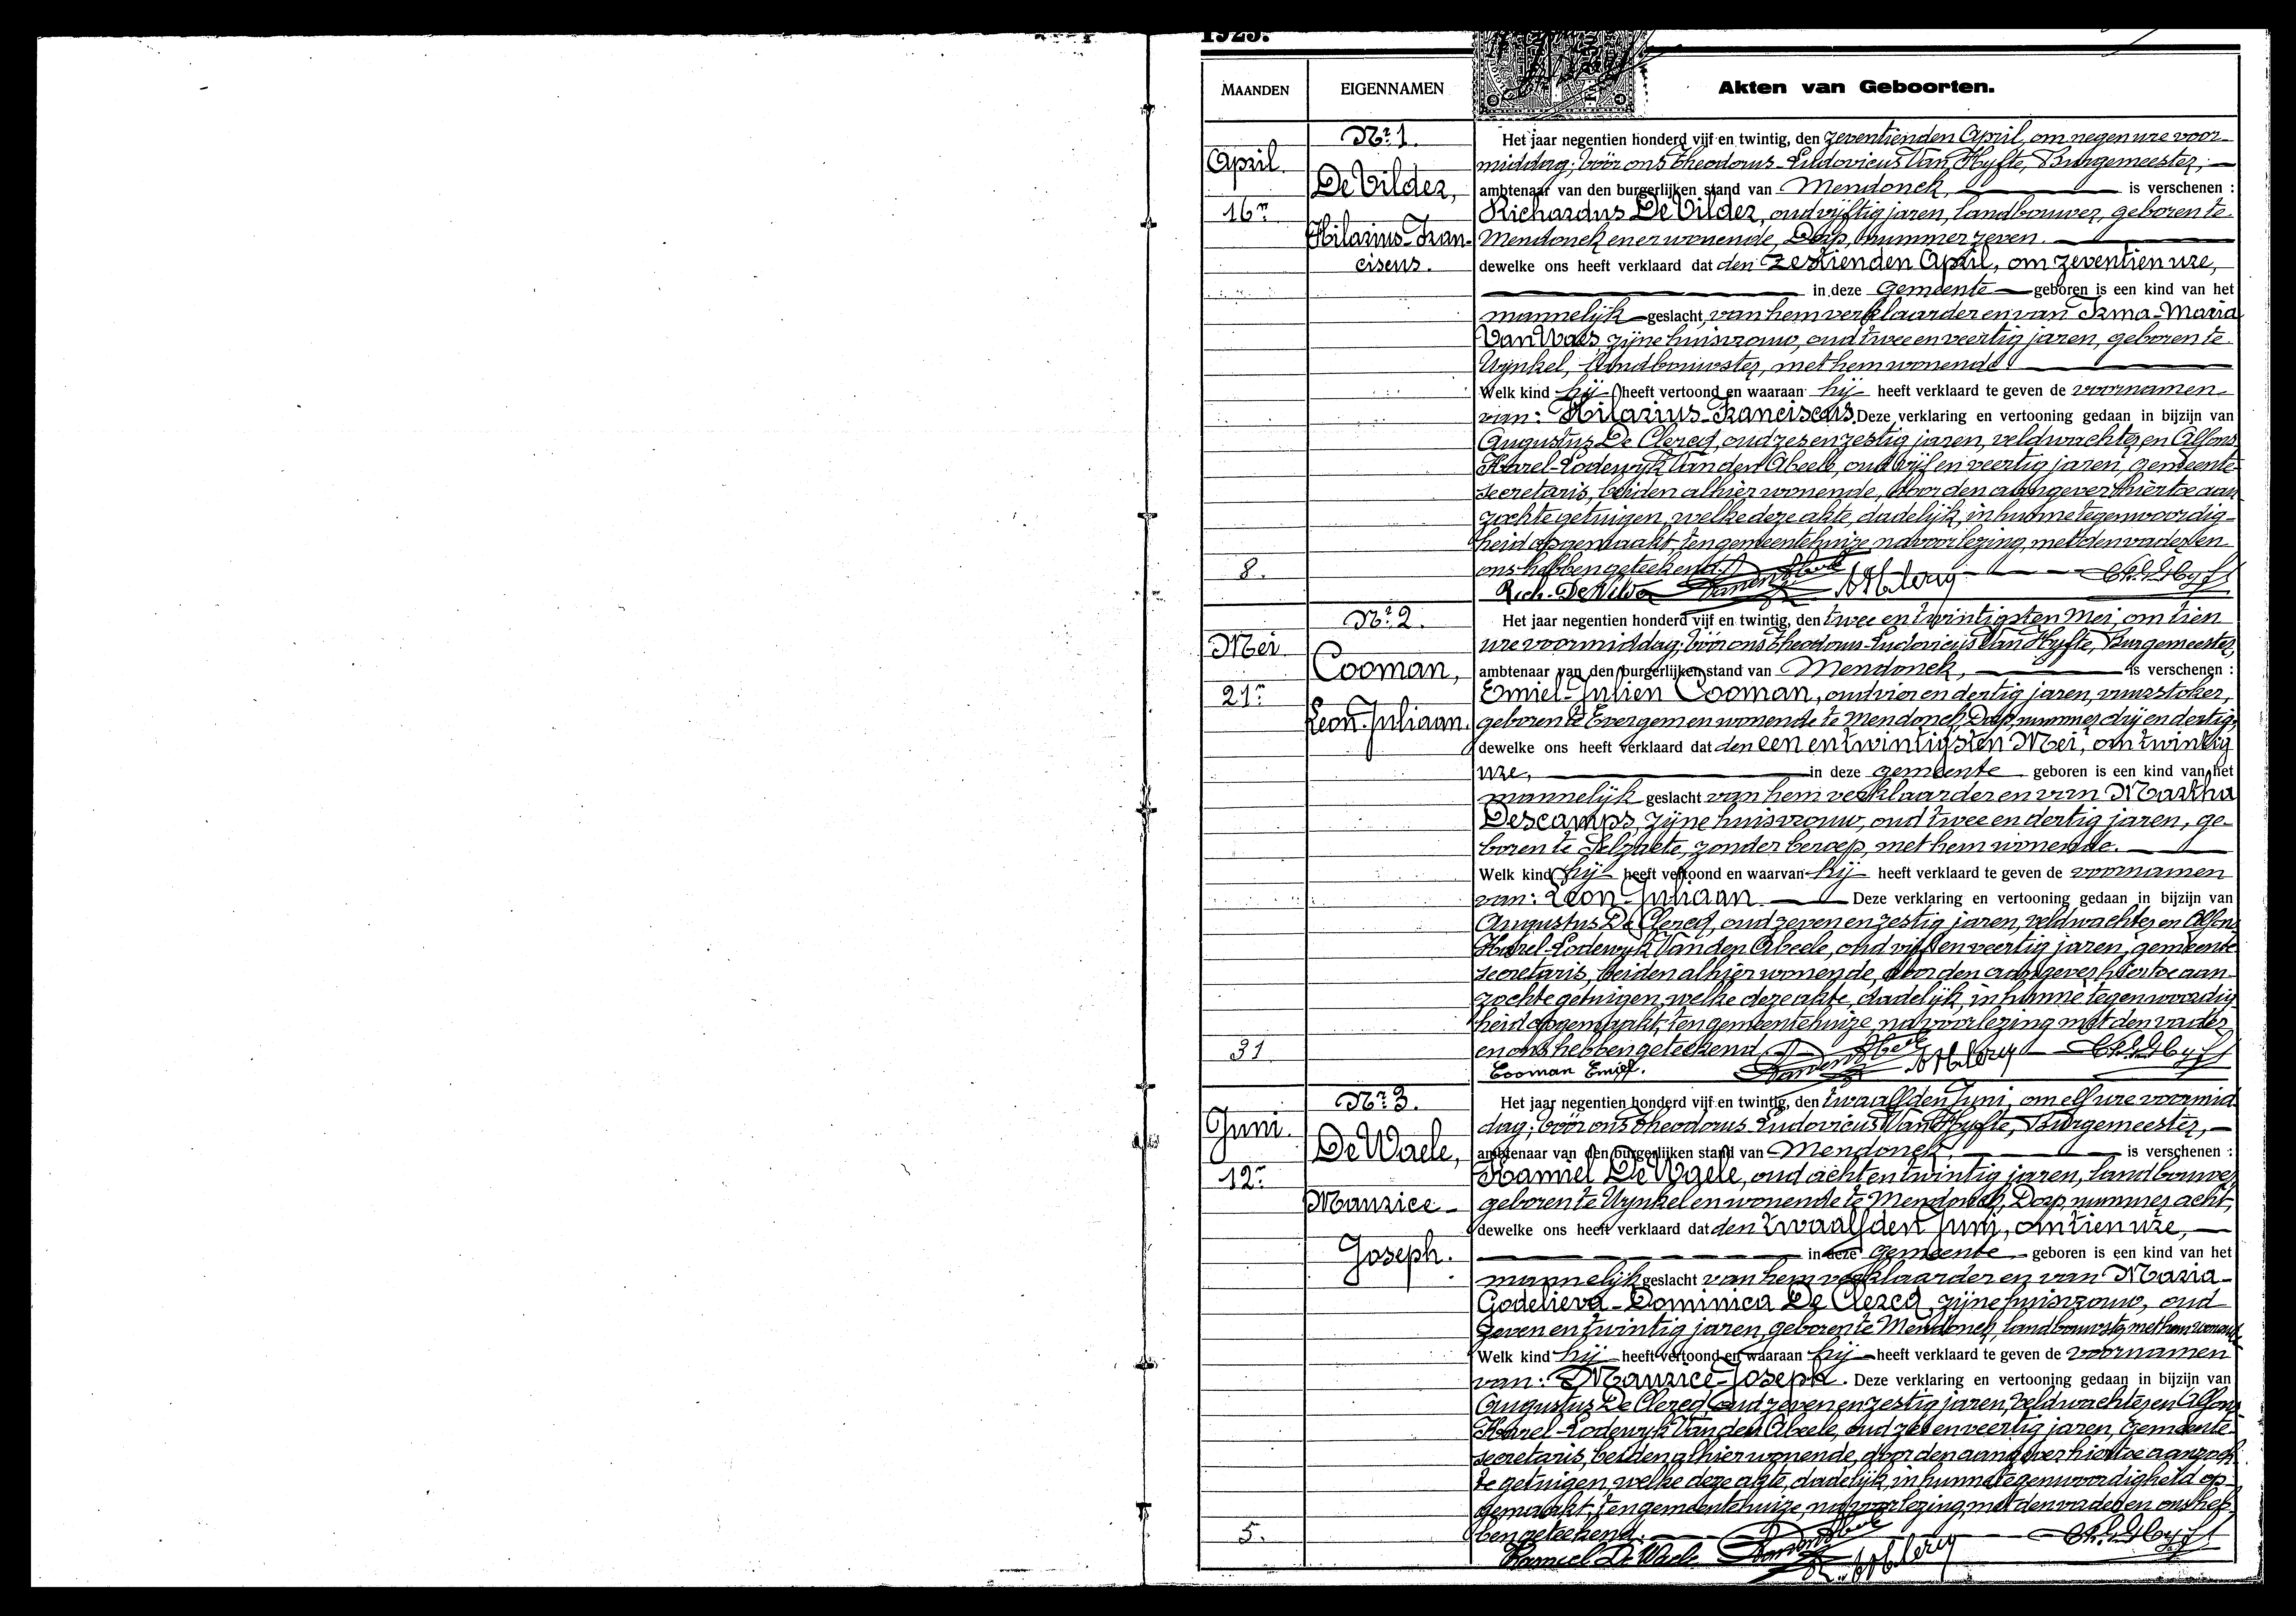 1925.
MAANDEN
EIGENNAMEN
Akten van Geboorten.
April
16n
8.
Nr. 1.
De Vilder,
Hilarius-Fran-
ciscus.
Het jaar negentien honderd vijf en twintig, den zeventienden April, om negen ure voor-
middag; vóór ons Theodorus-Ludovicus Van Hyfte, Burgemeester,
ambtenaar van den burgerlijken stand van Mendonck, is verschenen :
Richardus De Vilder, oud vijftig jaren, landbouwer, geboren te
Mendonck en er wonende, Dorp, nummer zeven.
dewelke ons heeft verklaard dat den zestienden April, om zeventien ure,
in deze gemeente geboren is een kind van het
mannelijk geslacht, van hem verklaarder en van Irma-Maria
Van Waes, zijne huisvrouw, oud twee en veertig jaren, geboren te
Wynkel, landbouwster, met hem wonende
Welk kind hij heeft vertoond en waaraan hij heeft verklaard te geven de voornamen
van: Hilarius-Franciscus. Deze verklaring en vertooning gedaan in bijzijn van
Augustus De Clercq, oud zes en zestig jaren, veldwachter, en Alfons
Karel-Lodewyk Van den Abeele, oud vijf en veertig jaren, gemeente-
secretaris, beiden alhier wonende, door den aangever hiertoe aan-
zochte getuigen, welke deze akte, dadelijk, in hunne tegenwoordig-
heid opgemaakt, ten gemeentehuize, na voorlezing, met den vader en
ons hebben geteekend.
Rich. De Vilder
Mei
21n
31
Nr. 2.
Cooman,
Leon-Juliaan.
Het jaar negentien honderd vijf en twintig, den twee en twintigsten Mei, om tien
ure voormiddag; vóór ons Theodorus-Ludovicus Van Hyfte, Burgemeester,
ambtenaar van den burgerlijken stand van Mendonck, is verschenen :
Emiel-Julien Cooman, oud vier en dertig jaren, vuurstoker,
geboren te Evergem en wonende te Mendonck, Dorp, nummer drij en dertig,
dewelke ons heeft verklaard dat den een en twintigsten Mei, om twintig
ure, in deze gemeente geboren is een kind van het
mannelijk geslacht van hem verklaarder en van Martha
Descamps, zijne huisvrouw, oud twee en dertig jaren, ge-
boren te Selzaete, zonder beroep, met hem wonende.
Welk kind hij heeft vertoond en waarvan hij heeft verklaard te geven de voornamen
van: Leon-Juliaan. Deze verklaring en vertooning gedaan in bijzijn van
Augustus De Clercq, oud zeven en zestig jaren, veldwachter, en Alfons
Karel-Lodewyk Van den Abeele, oud vijf en veertig jaren, gemeente
secretaris, beiden alhier wonende, door den aangever hiertoe aan-
zochte getuigen, welke deze akte, dadelijk, in hunne tegenwoordig
heid opgemaakt, ten gemeentehuize, na voorlezing met den vader
en ons hebben geteekend.
Cooman Emiel.
Juni
12n
5.
Nr. 3.
De Waele,
Maurice-
Joseph.
Het jaar negentien honderd vijf en twintig, den twaalfden Juni, om elf ure voormid-
dag; vóór ons Theodorus Ludovicus Van Hyfte, Burgemeester,
ambtenaar van den burgerlijken stand van Mendonck, is verschenen :
Kamiel De Waele, oud acht en twintig jaren, landbouwer,
geboren te Wynkel en wonende te Mendonck, Dorp, nummer acht,
dewelke ons heeft verklaard dat den twaalfden Juni, om tien ure,
in deze gemeente geboren is een kind van het
mannelijk geslacht van hem verklaarder en van Maria-
Godelieva-Dominica De Clercq, zijne huisvrouw, oud
zeven en twintig jaren, geboren te Mendonck, landbouwster, met hem wonende
Welk kind hij heeft vertoond en waaraan hij heeft verklaard te geven de voornamen
van: Maurice-Joseph. Deze verklaring en vertooning gedaan in bijzijn van
Augustus De Clercq, oud zeven en zestig jaren, veldwachter, en Alfons
Karel-Lodewyk Van den Abeele, oud zes en veertig jaren, gemeente-
secretaris, beiden alhier wonende, door den aangever hiertoe aanzoch-
te getuigen, welke deze akte, dadelijk, in hunne tegenwoordigheid op-
gemaakt, ten gemeentehuize, na voorlezing, met den vader en ons heb-
ben geteekend.
Kamiel De Waele